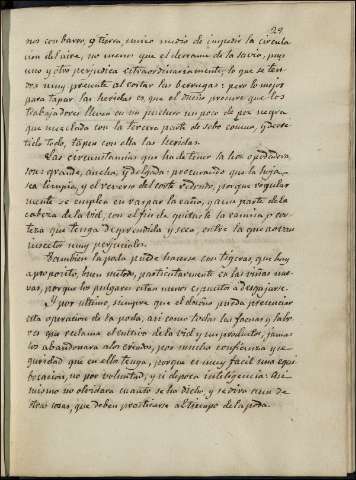 29
nos con barro, ó tierra, único medio de impedir la circula
cion del aire, no menos que el derrame de la savia, pues
uno y otro perjudica extraordinariamente; lo que se ten-
drá muy presente al cortar las berrugas: pero lo mejor
para tapar las heridas es, que el dueño procure que los
trabajadores lleven en un puchero un poco de pez negra
que mezclada con la tercera parte de sebo comun, y derre
tido todo, tapen con ella las heridas.
Las circunstancias que ha de tener la hoz podadera
son: grande, ancha, y delgada: procurando que la hoja
sea limpia, y el reverso del corte redondo, porque regular
mente se emplea en raspar la caña, y aun parte de la
cabeza de la vid, con el fin de quitarle la camisa, ó cor
teza que tenga desprendida y seca, entre la que anidan
insectos muy perjudiciales.
Tambien la poda puede hacerse con tigeras que hay
a proposito, buen método, particularmente en las viñas nue
vas, porque los pulgares estan menos espuestos a desgajarse.
Y por ultimo, siempre que el dueño pueda presenciar
esta operacion de la poda, asi como todas las faenas y labo
res que reclama el cultivo de la vid y sus productos, jamas
los abandonará a los criados, por mucha confianza y se
guridad que en ello tenga, porque es muy facil una equi
bocacion, no por voluntad, y si de poca inteligencia. Asi
mismo no olvidará cuanto se ha dicho, y se dirá aun de
otras cosas, que deben practicarse al tiempo de la poda.